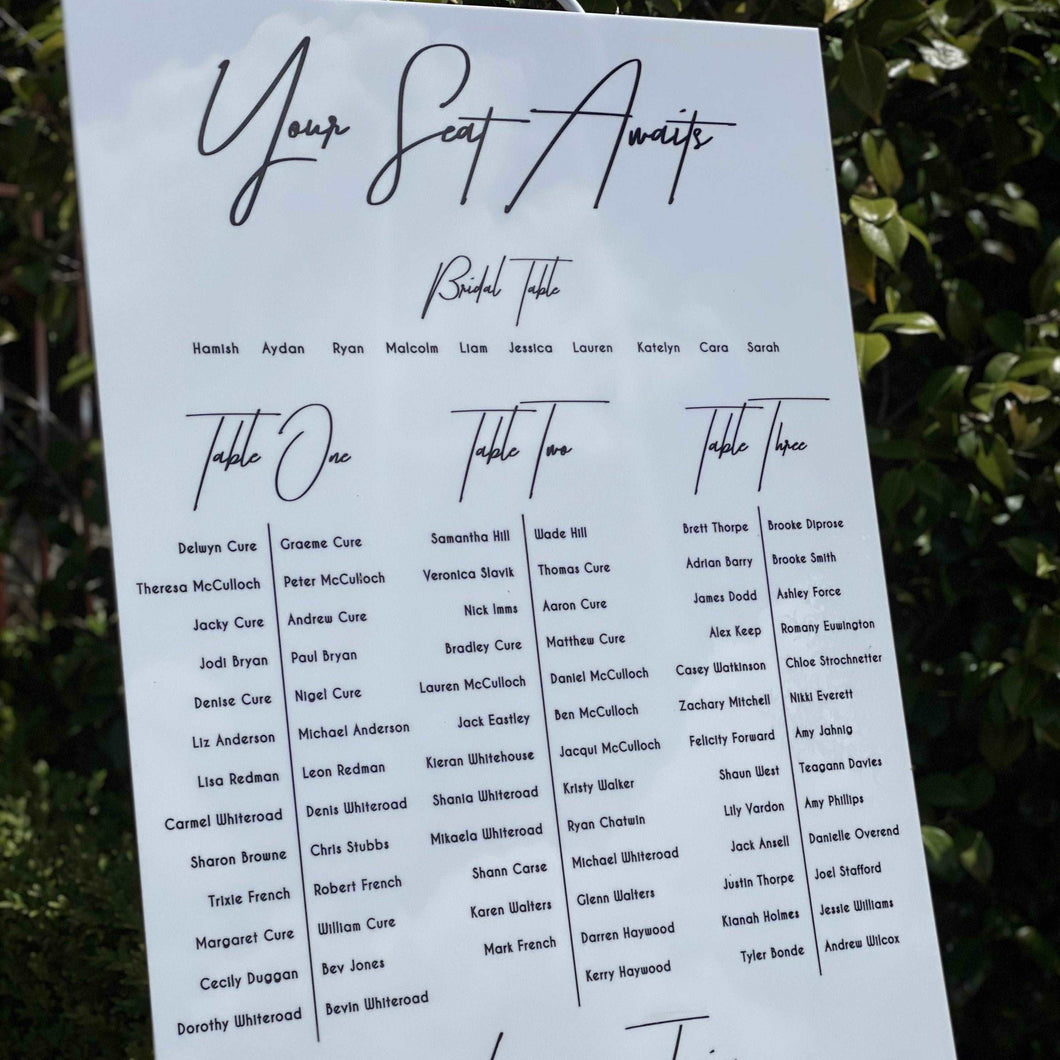 Your Seat Awaits
Bridal Table
Hamish Aydan Ryan Malcolm Liam Jessica Lauren Katelyn Cara Sarah
Table One
Delwyn Cure Graeme Cure
Theresa McCulloch Peter McCulloch
Jacky Cure Andrew Cure
Jodi Bryan Paul Bryan
Denise Cure Nigel Cure
Liz Anderson Michael Anderson
Lisa Redman Leon Redman
Carmel Whiteroad Denis Whiteroad
Sharon Browne Chris Stubbs
Trixie French Robert French
Margaret Cure William Cure
Cecily Duggan Bev Jones
Dorothy Whiteroad Bevin Whiteroad
Table Two
Samantha Hill Wade Hill
Veronica Slavik Thomas Cure
Nick Imms Aaron Cure
Bradley Cure Matthew Cure
Lauren McCulloch Daniel McCulloch
Jack Eastley Ben McCulloch
Kieran Whitehouse Jacqui McCulloch
Shania Whiteroad Kristy Walker
Mikaela Whiteroad Ryan Chatwin
Shann Carse Michael Whiteroad
Karen Walters Glenn Walters
Mark French Darren Haywood
Kerry Haywood
Table Three
Brett Thorpe Brooke Diprose
Adrian Barry Brooke Smith
James Dodd Ashley Force
Alex Keep Romany Euwington
Casey Watkinson Chloe Strochnetter
Zachary Mitchell Nikki Everett
Felicity Forward Amy Jahnig
Shaun West Teagann Davies
Lily Vardon Amy Phillips
Jack Ansell Danielle Overend
Justin Thorpe Joel Stafford
Kianah Holmes Jessie Williams
Tyler Bonde Andrew Wilcox